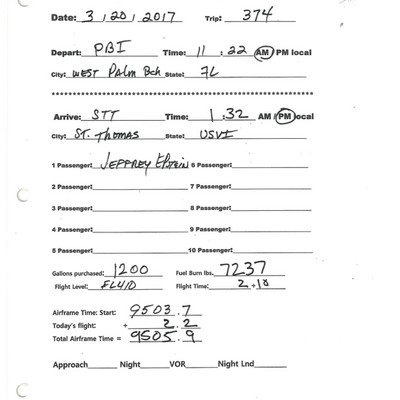 Date: 3 / 20 / 2017 Trip: 374
Depart: PBI Time: 11 : 22 AM PM local
City: WEST PALM BCH State: FL
Arrive: STT Time: 1 : 32 AM / PM local
City: ST. THOMAS State: USVI
1 Passenger: JEFFREY EPSTEIN 6 Passenger:
2 Passenger: 7 Passenger:
3 Passenger: 8 Passenger:
4 Passenger: 9 Passenger:
5 Passenger: 10 Passenger:
Gallons purchased: 1200 Fuel Burn lbs. 7237
Flight Level: FLUID Flight Time: 2 + 10
Airframe Time: Start: 9503.7
Today's flight: + 2.2
Total Airframe Time = 9505.9
Approach Night VOR Night Lnd